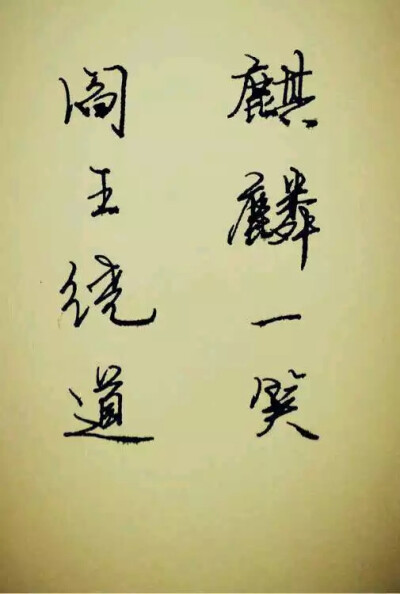 麒麟一笑
阎王绕道